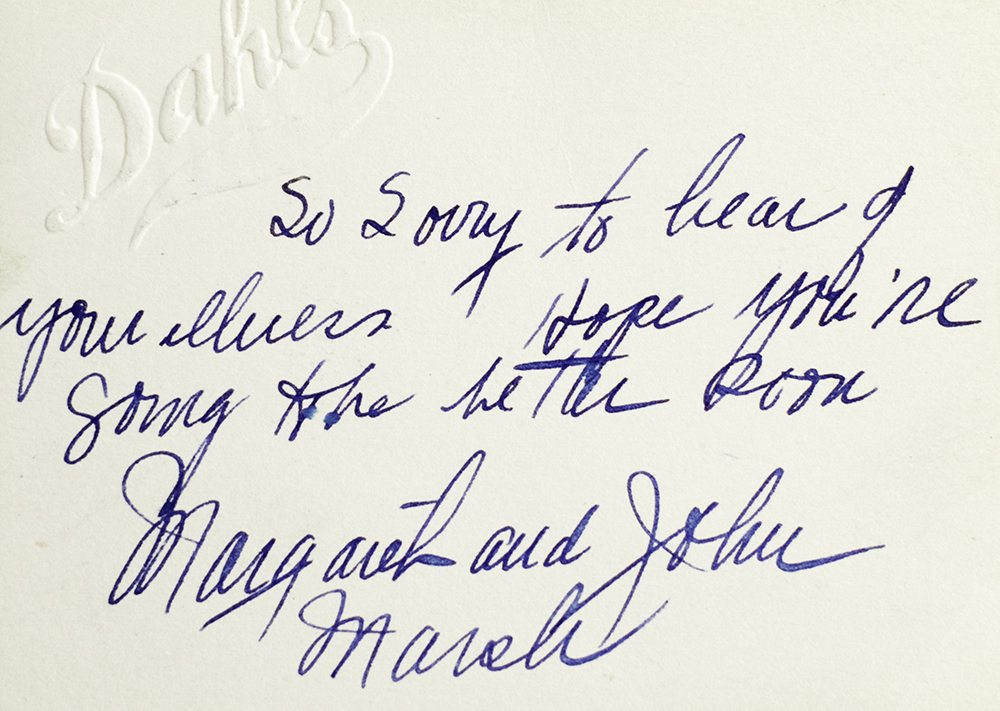 Dahls
So Sorry to hear of
your illness Hope you're
going to be better Soon
Margaret and John
Marsh